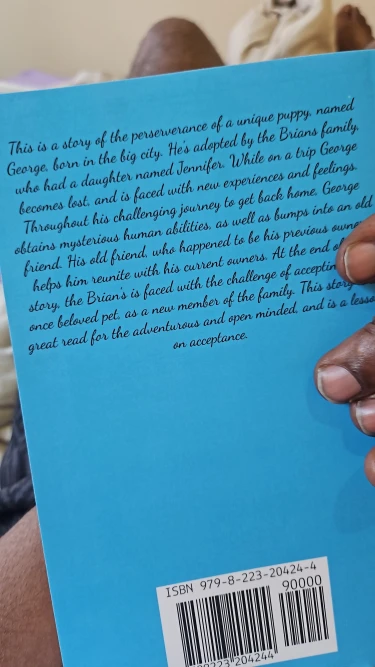 This is a story of the perserverance of a unique puppy, named
George, born in the big city. He's adopted by the Brians family,
who had a daughter named Jennifer. While on a trip George
becomes lost, and is faced with new experiences and feelings.
Throughout his challenging journey to get back home, George
obtains mysterious human abilities, as well as bumps into an old
friend. His old friend, who happened to be his previous owner
helps him reunite with his current owners. At the end of
story, the Brian's is faced with the challenge of accepting
once beloved pet, as a new member of the family. This story
great read for the adventurous and open minded, and is a lesson
on acceptance.
ISBN 979-8-223-20424-4
90000